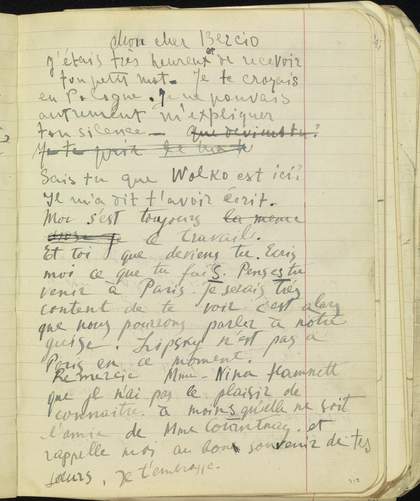 Mon cher Bercio
J'étais très heureux de recevoir
ton petit mot. Je te croyais
en Pologne. Je ne pouvais
autrement m'expliquer
ton silence — que deviens tu?
Je te
Sais tu que Wolko est ici?
Il m'a dit t'avoir écrit.
Moi s'est toujours la meme
chose je le travaille.
Et toi que deviens tu. Ecris
moi ce que tu fais. Penses tu
venir à Paris Je serais très
content de te voir c'est alors
que nous pourrons parler à notre
guise. Lipsky n'est pas à
Paris en ce moment.
Remercie Mme Nina Hamnett
que je n'ai pas le plaisir de
connaitre à moins qu'elle ne soit
l'amie de Mme et
rappelle moi au bon souvenir de tes
sœurs, Je t'embrasse.